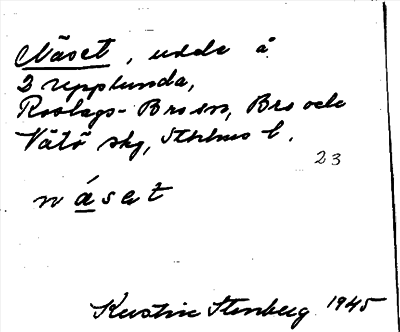 Näset, udde å
Drepplunda,
Roslags-Bro sn, Bro och
Vätö skg, Sthlms l.
23
náset
Kerstin Stenberg 1945